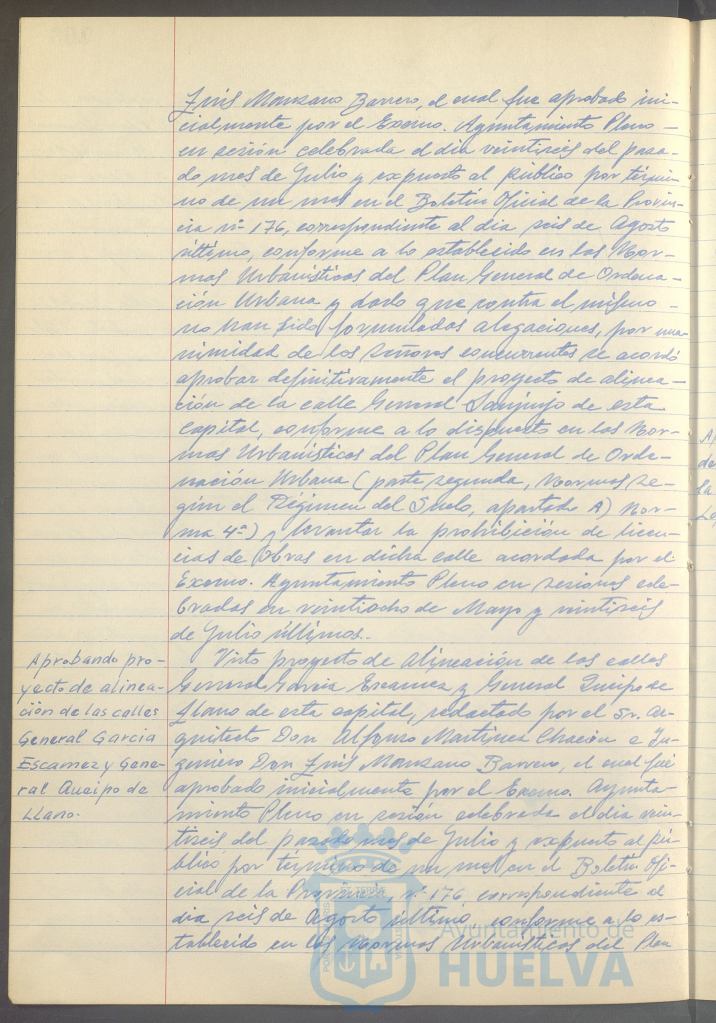 Luis Manzano Barrero, el cual fue aprobado ini-
cialmente por el Excmo. Ayuntamiento Pleno -
en sesión celebrada el día veintiseis del pasa-
do mes de Julio y expuesto al público por térmi-
no de un mes en el Boletín Oficial de la Provin-
cia nº 176, correspondiente al día seis de Agosto
último, conforme a lo establecido en las Nor-
mas Urbanísticas del Plan General de Ordena-
ción Urbana y dado que contra el mismo -
no han sido formuladas alegaciones, por una-
nimidad de los señores concurrentes se acordó
aprobar definitivamente el proyecto de alinea-
ción de la calle General Sanjurjo de esta
capital, conforme a lo dispuesto en las Nor-
mas Urbanísticas del Plan General de Orde-
nación Urbana (parte segunda, Normas se-
gún el Régimen del Suelo, apartado A) Nor-
ma 4ª) y levantar la prohibición de licen-
cias de Obras en dicha calle acordada por el
Excmo. Ayuntamiento Pleno en sesiones cele-
bradas en veintiocho de Mayo y veintiseis
de Julio últimos.
Aprobando pro-
yecto de alinea-
ción de las calles
General Garcia
Escamez y Gene-
ral Queipo de
Llano.
Visto proyecto de alineación de las calles
General Garcia Escamez y General Queipo de
Llano de esta capital, redactado por el Sr. Ar-
quitecto Don Alfonso Martínez Chacón e In-
geniero Don Luis Manzano Barrero, el cual fué
aprobado inicialmente por el Excmo. Ayunta-
miento Pleno en sesión celebrada el día vein-
tiseis del pasado mes de Julio y expuesto al pú-
blico por término de un mes en el Boletín Ofi-
cial de la Provincia, nº 176 correspondiente al
día seis de Agosto último, conforme a lo es-
tablecido en las Normas Urbanísticas del Plan
Ayuntamiento de
HUELVA